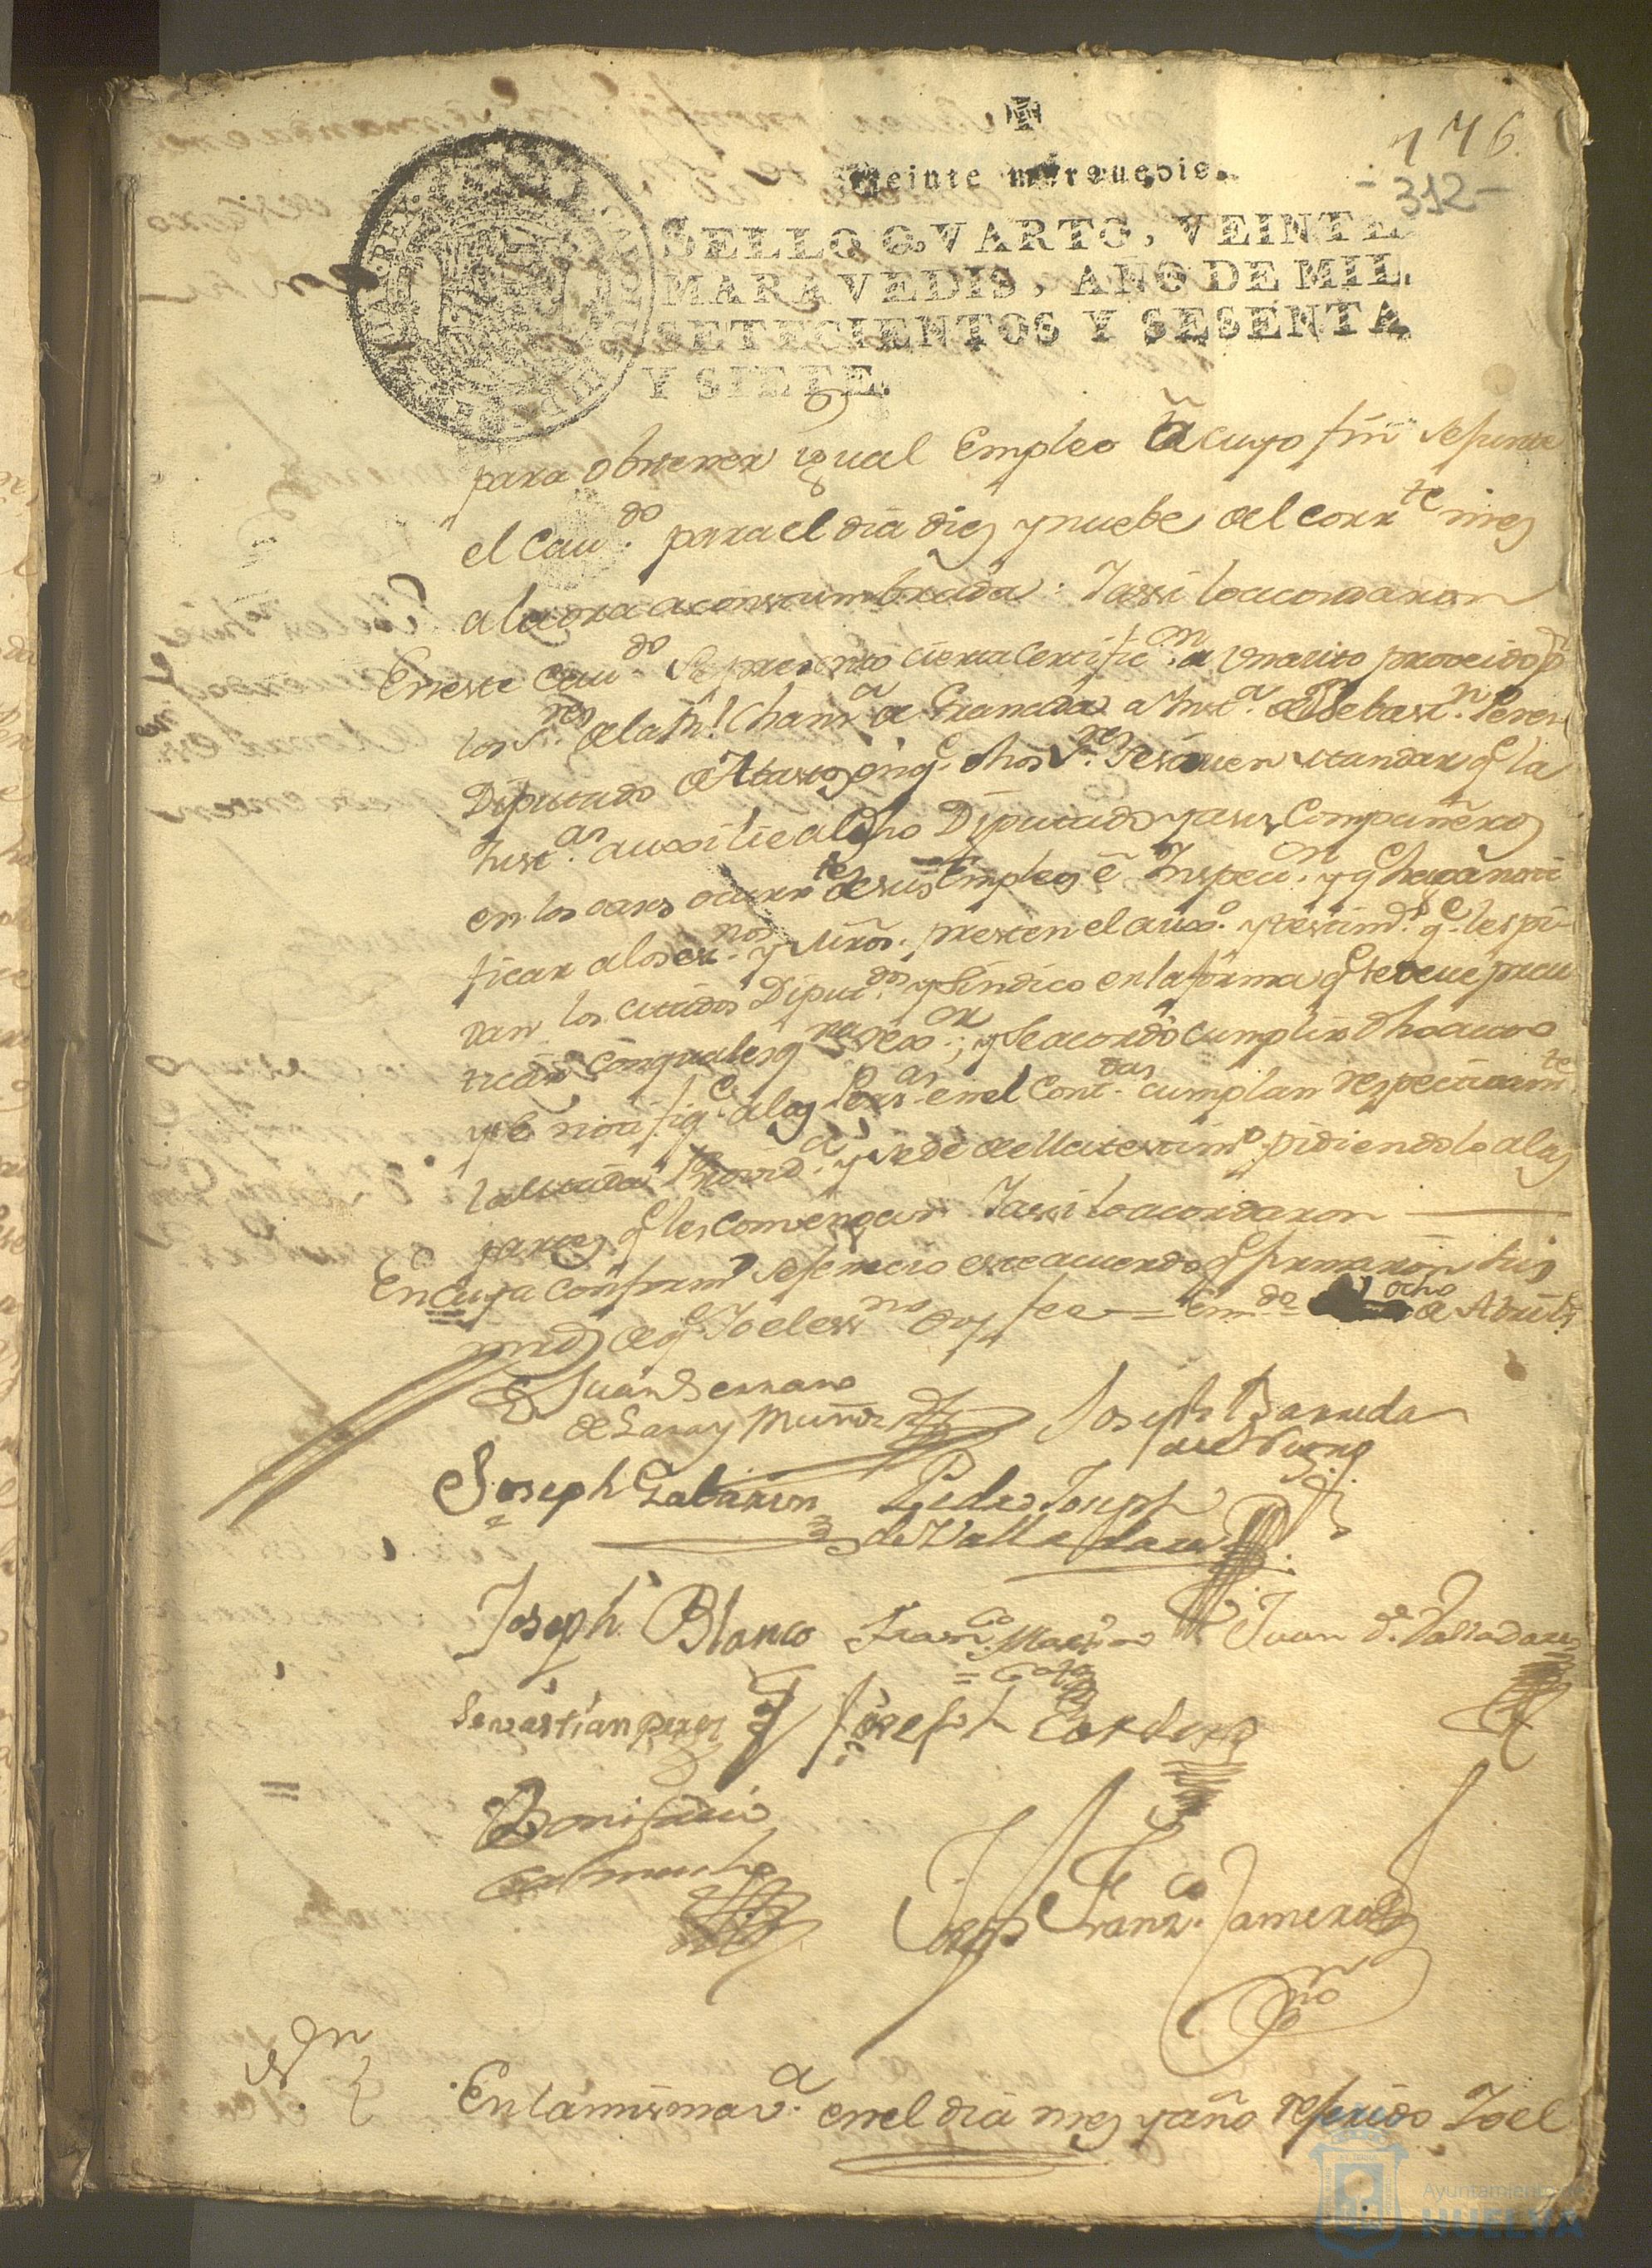 176
Veinte maravedis.
-312-
SELLO QVARTO, VEINTE
MARAVEDIS, AÑO DE MIL
SETECIENTOS Y SESENTA
Y SIETE.
para obtener igual Empleo a cuyo fin se junte
el Cau.do para el dia diez y nuebe del corr.te mes
a la ora acostumbrada. Y assi lo acordaron
En este Cau.do se presentó cierta Certific.on de un auto proveido p.r
los S.res de la R.l Chanz.a de Granada a Inst.a de Sebast.n Perez
Diputado de Abastos en q.e dhos S.res se sirven mandar q.e la
Just.as auxilie al dho Diputado y a sus Compañeros
en los casos ocurr.tes de sus Empleos e Inspecc.n y q.e hagan noti
ficar a los es.nos y Mros. presten el aux.o y testim.o q.e les pi-
dan los citados Diput.dos y Sindico en la forma q.e se deve prac
ticar
y se notifiq.e a las Pers.as en el cont.das cumplan respectivam.te
la citada Provid.a y se dé de ella testim.o pidiendolo a las
partes q.e les convengan. Y assi lo acordaron
En cuya conform.d se feneció este acuerdo q.e firmaron sus
mrds de q.e Yo el ess.no doy fee = em.do ocho de Abril
D. Juan Serrano
de Lara y Muñiz
Joseph Barreda
Joseph Gabarron
Pedro Joseph
de Valladares
Joseph Blanco
Fran.co Martin
Juan d. Valladares
Sevastian perez
Joseph Cordero
=
Bonifacio
Jorge Franz.co Jamero
ess.no
En la misma v.a en el dia mes y año referido Yo el
Ayuntamiento de
HUELVA